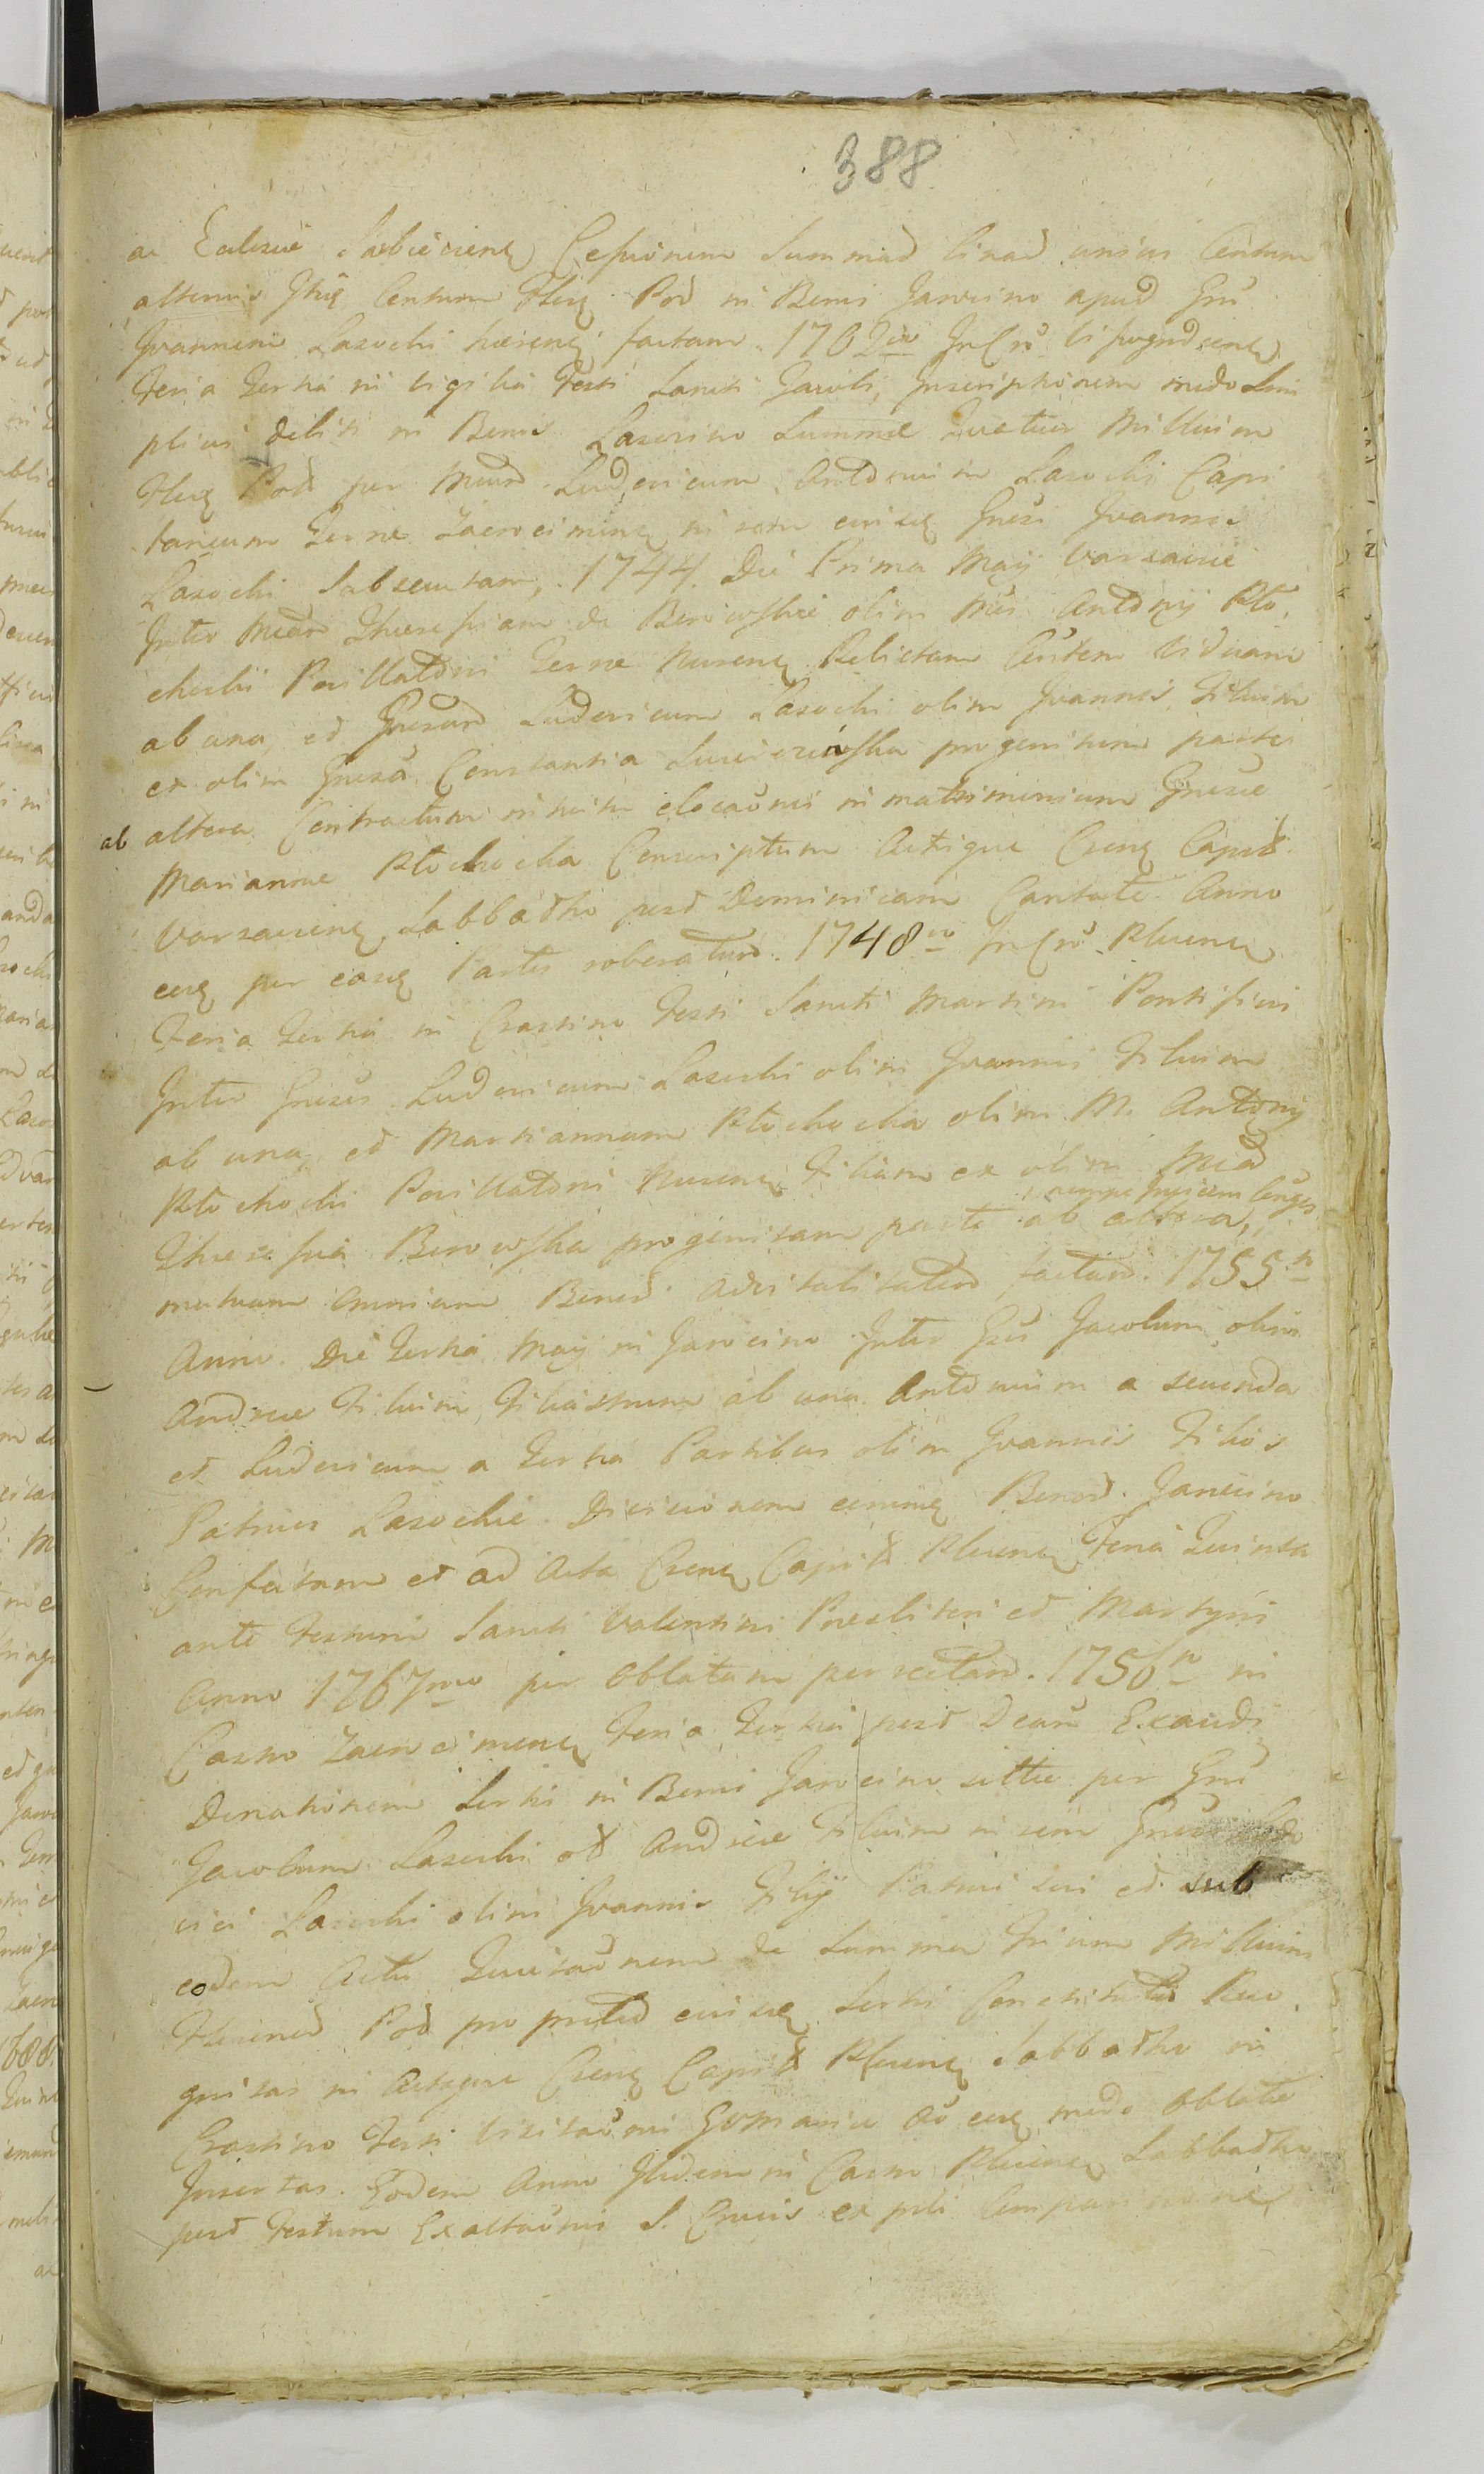 388
ac Eccl[esi]ae Sarbieviens Cessionem Summar binar unius Centum
alterius Itide Centum Flor Pol in Bonis Jarocino apud Gru
Joannem Lasocki haerens factam. 1702do In Cro Wyszogrodiens
Feria Tertia in vigilia Festi Sancti Jacobi, Inscriptionem modo Sim
plicis debiti in Bonis Lasocino Summae Quatuor Millium
Flor Pol per Mcum Ludovicum Antonium Lasocki Capi
taneum Terrae Zacrocimens in rem eiusd Gnosi Joannis
Lasocki Subsecutam, 1744. Die Prima Maij Varsaviae
Inter Mcam Theresiam de Borowskie olim Mci Antonij Kło,
chocki Pocillatoris Terrae Nurens Relictam Eundem Viduam
ab una, et Gnosum Ludovicum Lasocki olim Joannis Filium
ex olim Gnosa Constantia progenitum parte
ab altera Contractum initum elocaonis in matrimonium Gnosae
Mariannae Kłochocka Conscriptum Actisque Crens Capit
Varsaviens Sabbatho post Dominicam Cantate Anno
eod per easd Partes roboratum. 1748vo In Cro Plocens
Feria Tertia in Crastino Festi Sancti Martini Pontificis
Inter Gnosos Ludovicum Lasocki olim Joannis Filium
ab una, et Mariannam Kłochocka olim M. Antonij
Kłochocki Pocillatoris Nurens Filiam ex olim Mca
Theresia Borowska progenitam parte ab altera, nempe Invicem Conges
mutuam omnium Bonor advitalitatem factam. 1755to
Anno. Die Tertia Maij in Jarocino Inter Gsos Jacobum olim
Andreae Filium, Filiastrum ab una Antonium a secunda
et Ludovicum a Tertia Partibus olim Joannis Filios
Patruos Lasockie Divisionem eorund Bonor. Jarocino
Confectam et ad Acta Crens Capit Plocens Feria Quinta
ante Festum Sancti Valentini Presbiteri et Martyris
Anno 1767mo per Oblatam porrectam. 1756to in
Castro Zacrocimens Feria Tertia post Dcam Exaudi
Donationem Sortis in Bonis Jarocino sittae per Gnos
Jacobum Lasocki olim Andreae Filium in rem Gnosi Ludo
vici Lasocki olim Joannis Filij Patrui sui et sub
eodem Actu Quietaonem de Summa Trium Millium
Florenor Pol pro pretio eiusd Sortis Constituta Reco,
gnitas in Actisque Crens Capit Plocens Sabbatho in
Crastino Festi Visitaonis GVMariae Ao eod modo Oblatae
Insertas. Eodem Anno Ibidem in Castro Plocens Sabbatho
post Festum Exaltaonis S. Crucis ex